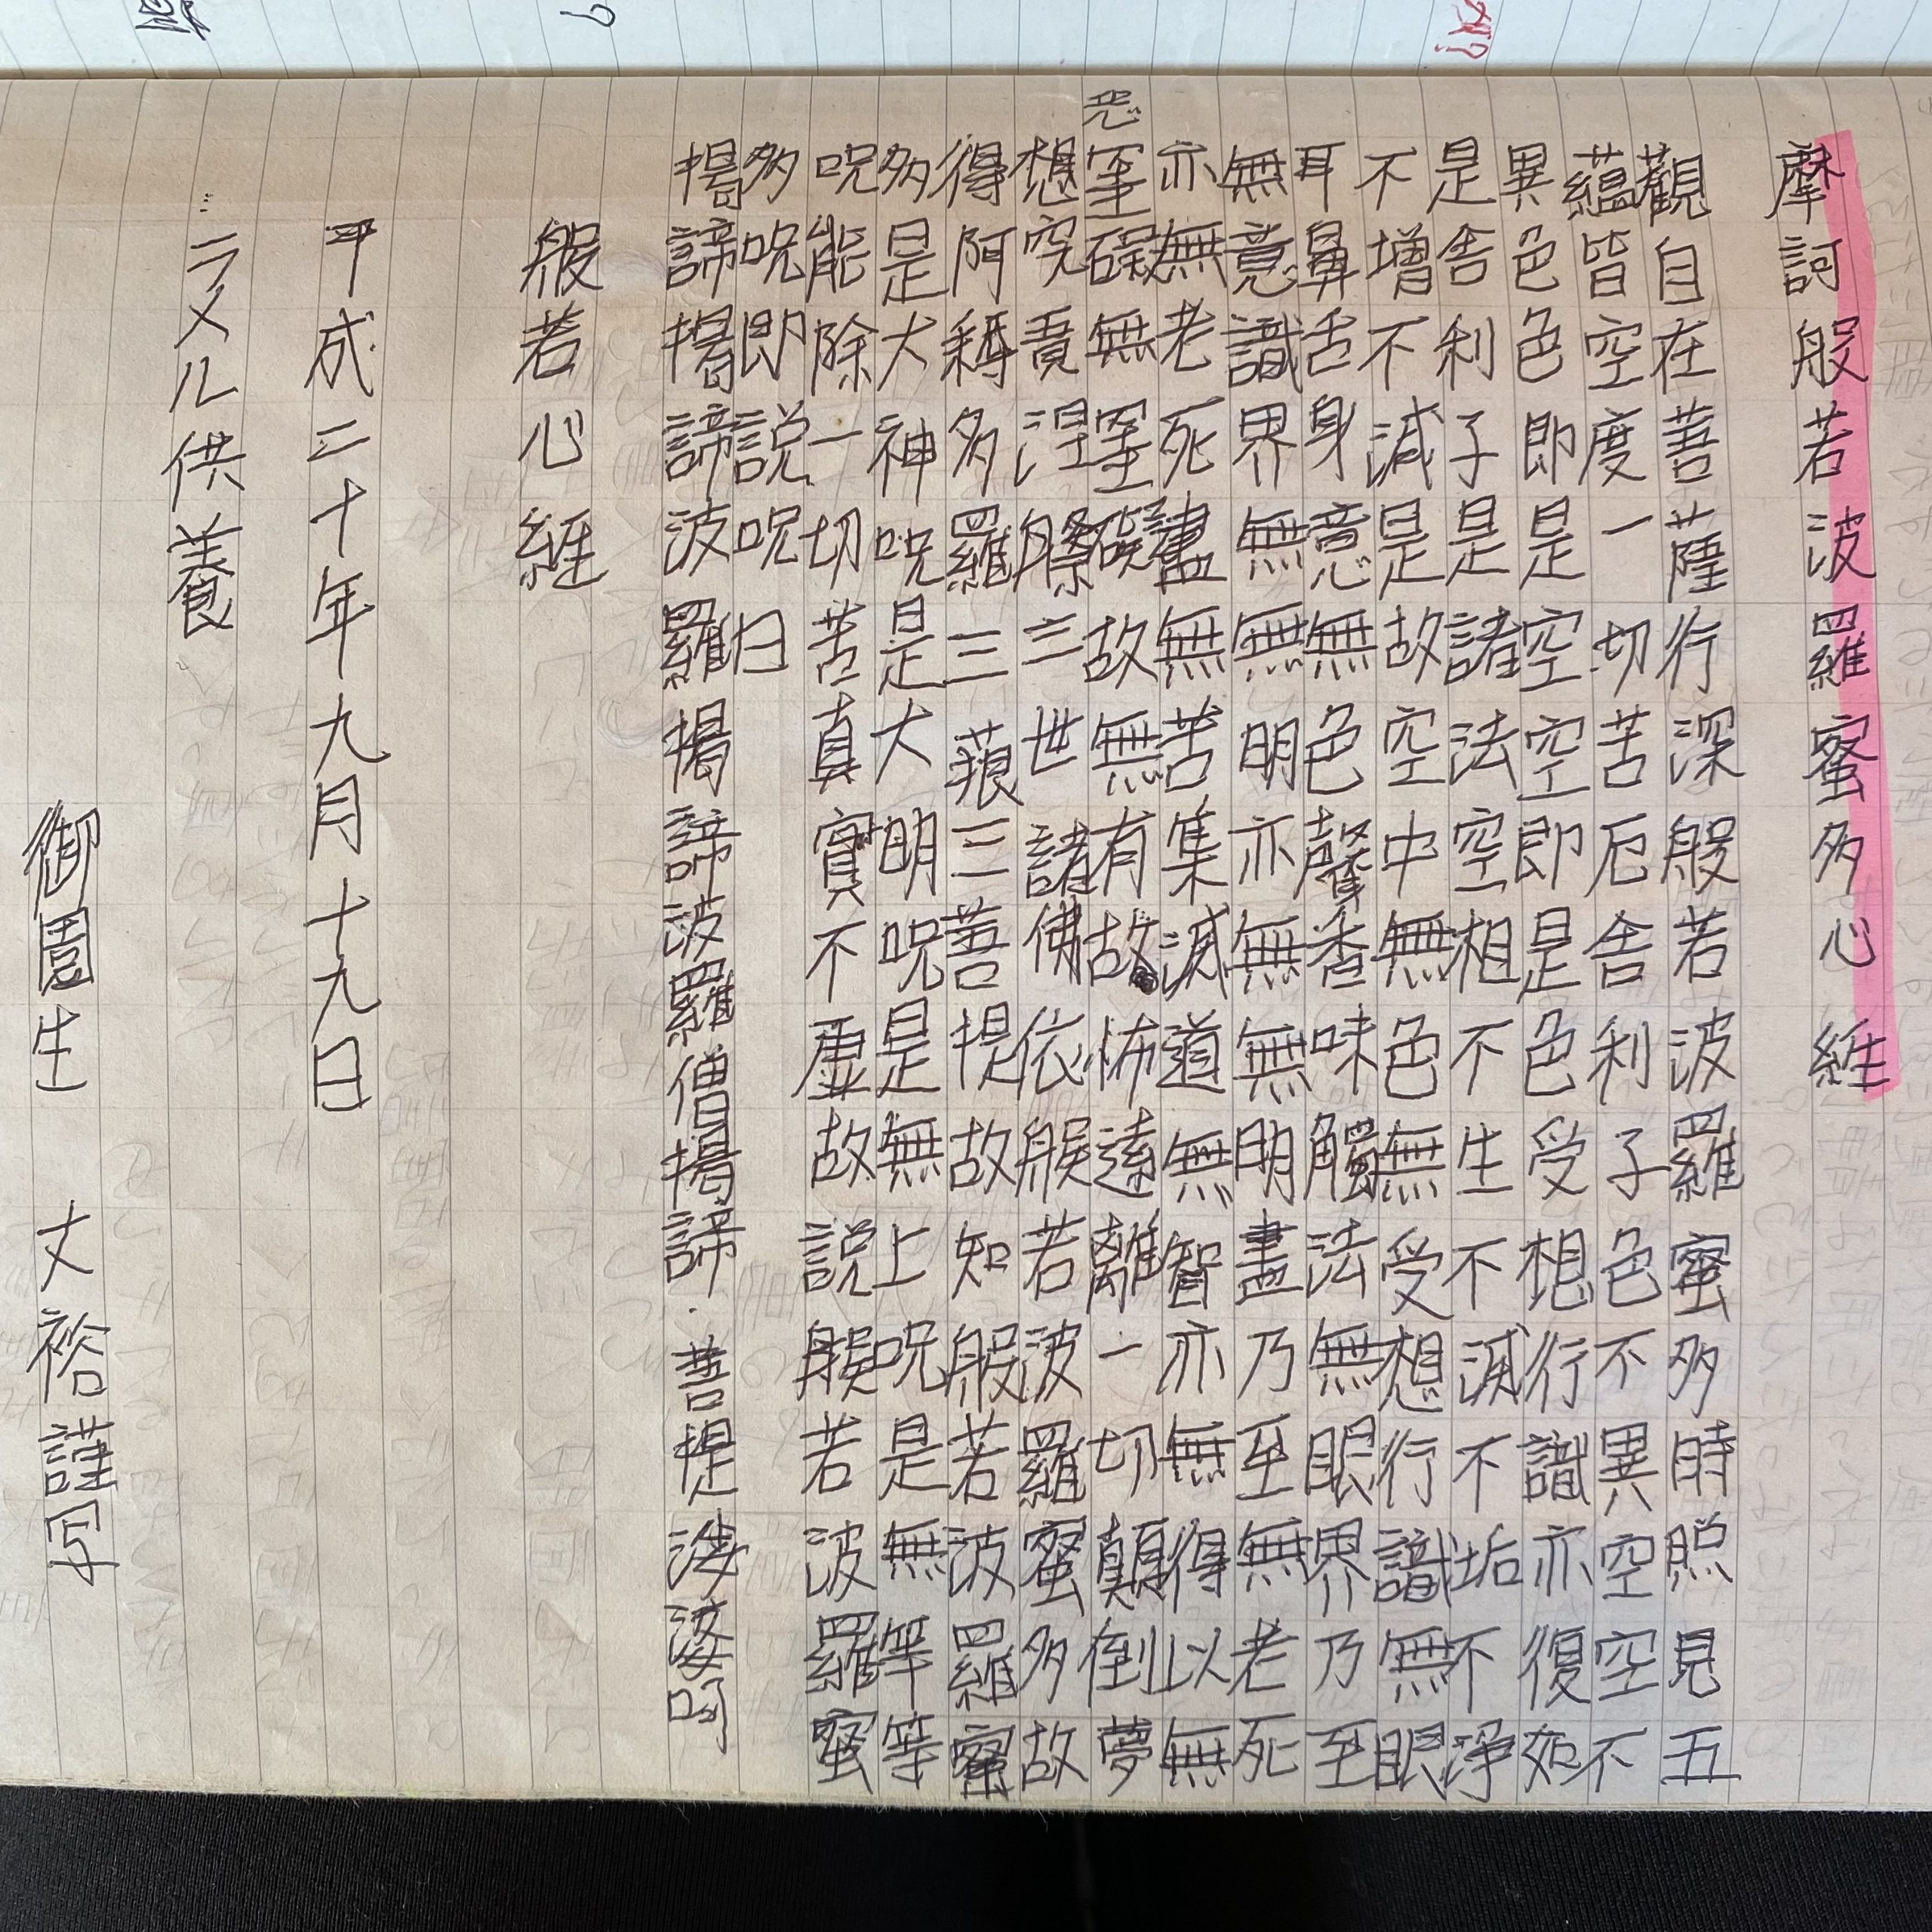 摩訶般若波羅蜜多心維
觀自在菩薩行深般若波羅蜜多時照見五
蘊皆空度一切苦厄舎利子色不異空空不
異色色即是空空即是色受想行識亦復如
是舎利子是諸法空相不生不滅不垢不浄
不増不減是故空中無色無受想行識無眼
耳鼻舌身意無色聲香味觸法無眼界乃至
無意識界無無明亦無無明盡乃至無老死
亦無老死盡無苦集滅道無智亦無得以無
恐
罣礙無罣礙故無有故怖遠離一切顛倒夢
想究竟涅槃三世諸佛依般若波羅蜜多故
得阿耨多羅三藐三菩提故知般若波羅蜜
多是大神呪是大明呪是無上呪是無等等
呪能除一切苦真實不虚故説般若波羅蜜
多呪即説呪曰
揭諦揭諦波羅揭諦波羅僧揭諦菩提娑婆訶
般若心維
平成二十年九月十九日
ラメル供養
御園生 丈裕謹写